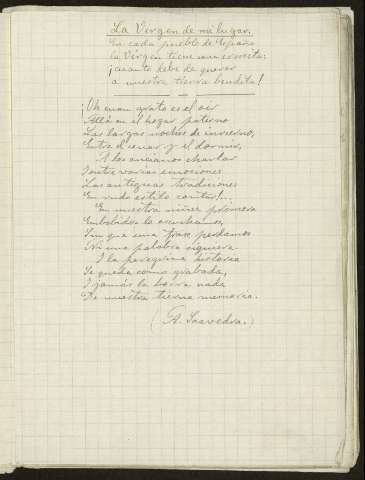 La Vírgen de mi lugar.
En cada pueblo de España
la Vírgen tiene una ermita:
¡cuanto debe de querer
a nuestra tierra bendita!
¡Oh cuan grato es el oir
Allá en el hogar paterno
Las largas noches de invierno,
Entre el cenar y el dormir,
A los ancianos charlar
I entre varias emociones
Las antiguas tradiciones
En rudo estilo contar!...
En nuestra niñez primera
Embebidos lo escuchamos,
Sin que una frase perdamos
Ni una palabra siquiera
I la peregrina historia
Se queda como grabada,
I jamás la borra nada
De nuestra tierna memoria.
(A. Saavedra.)